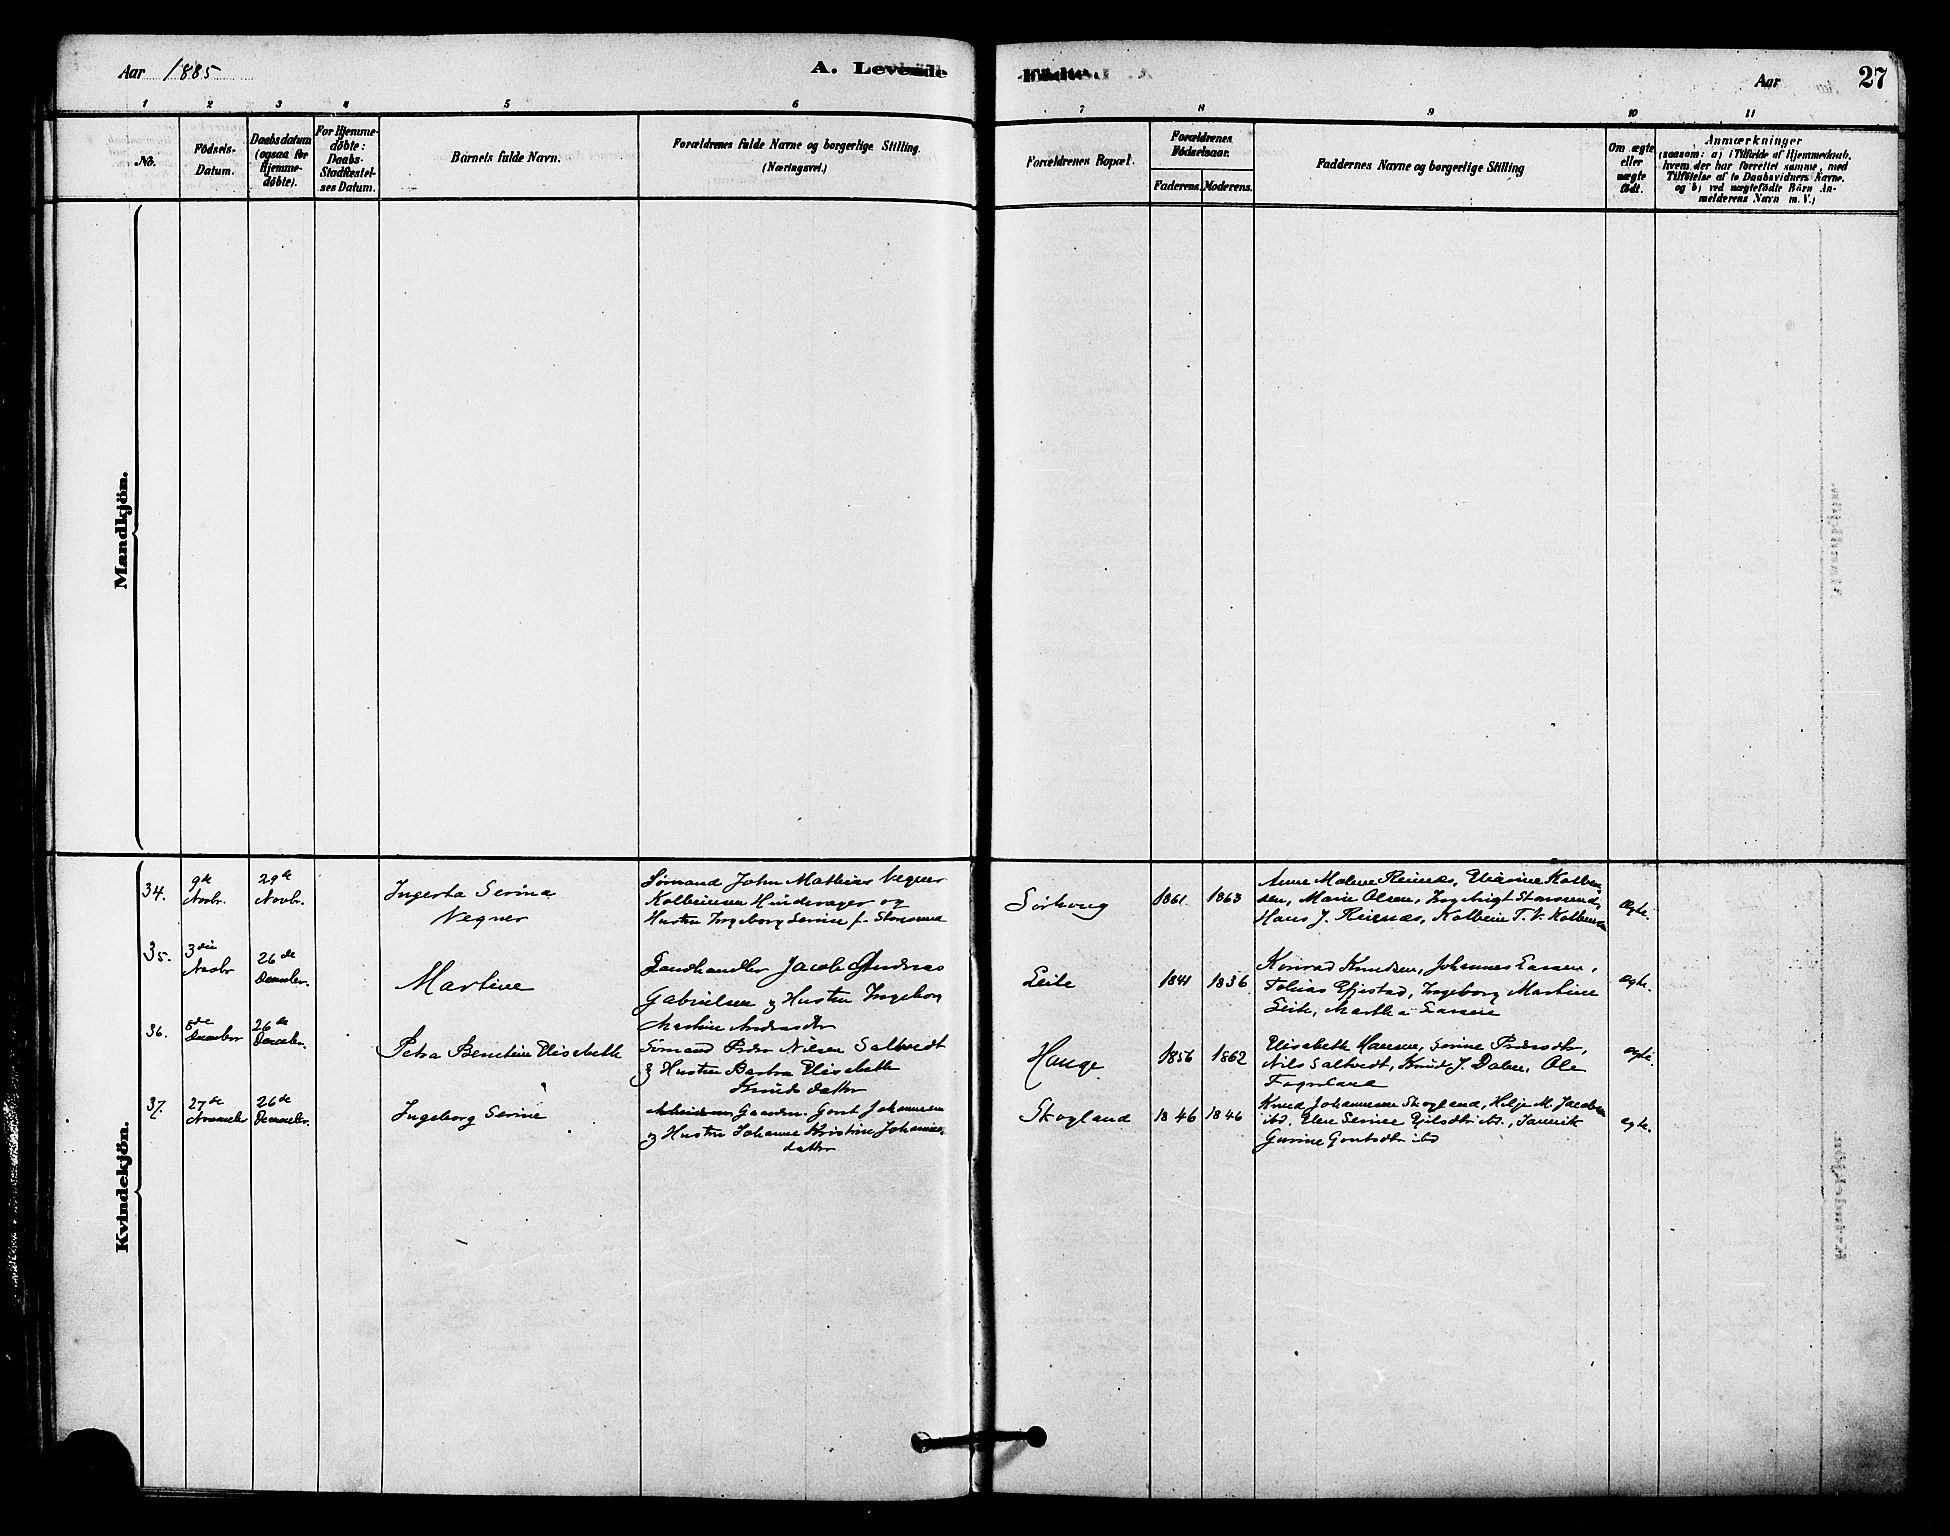 Aar 1885
A. Levende
Fødte.
Aar
27
1 2 3 4 5 6 7 8 9 10 11
No.
Födsels-
Datum.
Daabsdatum
(ogsaa for
Hjemme-
døbte).
For Hjemme-
døbte:
Daabs-
Stadfæstel-
ses Datum.
Barnets fulde Navn.
Forældrenes fulde Navne og borgerlige Stilling.
(Næringsvei.)
Forældrenes Bopæl.
Forældrenes
Fødselsaar.
Faderens. Moderens.
Faddernes Navne og borgerlige Stilling
Om ægte
eller
uægte
født.
Anmærkninger
(saasom: a) i Tilfælde af Hjemmedaab,
hvem der har forrettet samme, med
Tilføielse af to Daabsvidners Navne.
og b) ved uægtefødte Börn An-
melderens Navn m. V.)
Mandkjön.
Kvindekjön.
34.
9de
Novbr.
29de
Novbr.
Ingerta Serina
Vegner
Sömand John Mathias Vegner
Kolbeinsen Hindevager og
Hustru Ingeborg Serine f.
Sörhoug
1861
1863
Anne Malene Reinæs, Eliasine Kolbein-
sen, Marie Olsen,
Hans J. Reinæs, Kolbein T. V. Kolbeinsen
Ægte.
35.
3die
Novbr
26de
Decembr.
Martine
Landhandler Jacob Andreas
Gabrielsen og Hustru Ingeborg
Martine Andreasdtr
Leite
1841
1836
Konrad Knudsen, Johannes Larsen,
Tobias Efjestad, Ingeborg Martine
Leite, Martha Larsen
Ægte.
36.
5de
December
26de
Decembr.
Petra Berntine Elisabeth
Sömand Peder Nilsen Saltvedt
og Hustru Barbra Elisabeth
Knudsdatter
Hauge
1856
1862
Elisabeth Hansen, Serine Pedersdtr,
Nils Saltvedt, Knud J. Dalen, Ole
Fagerland
Ægte
37.
27de
November
26de
Decembr.
Ingeborg Serine
Gaardm. Gont Johannesen
og Hustru Johanne Kristine Johannes-
datter
Skogland
1846
1846
Knud Johannesen Skogland, Helje M. Jacobsen
ibd, Elen Serine ibd.,
Gurine Gontsdtr ibd
Ægte.